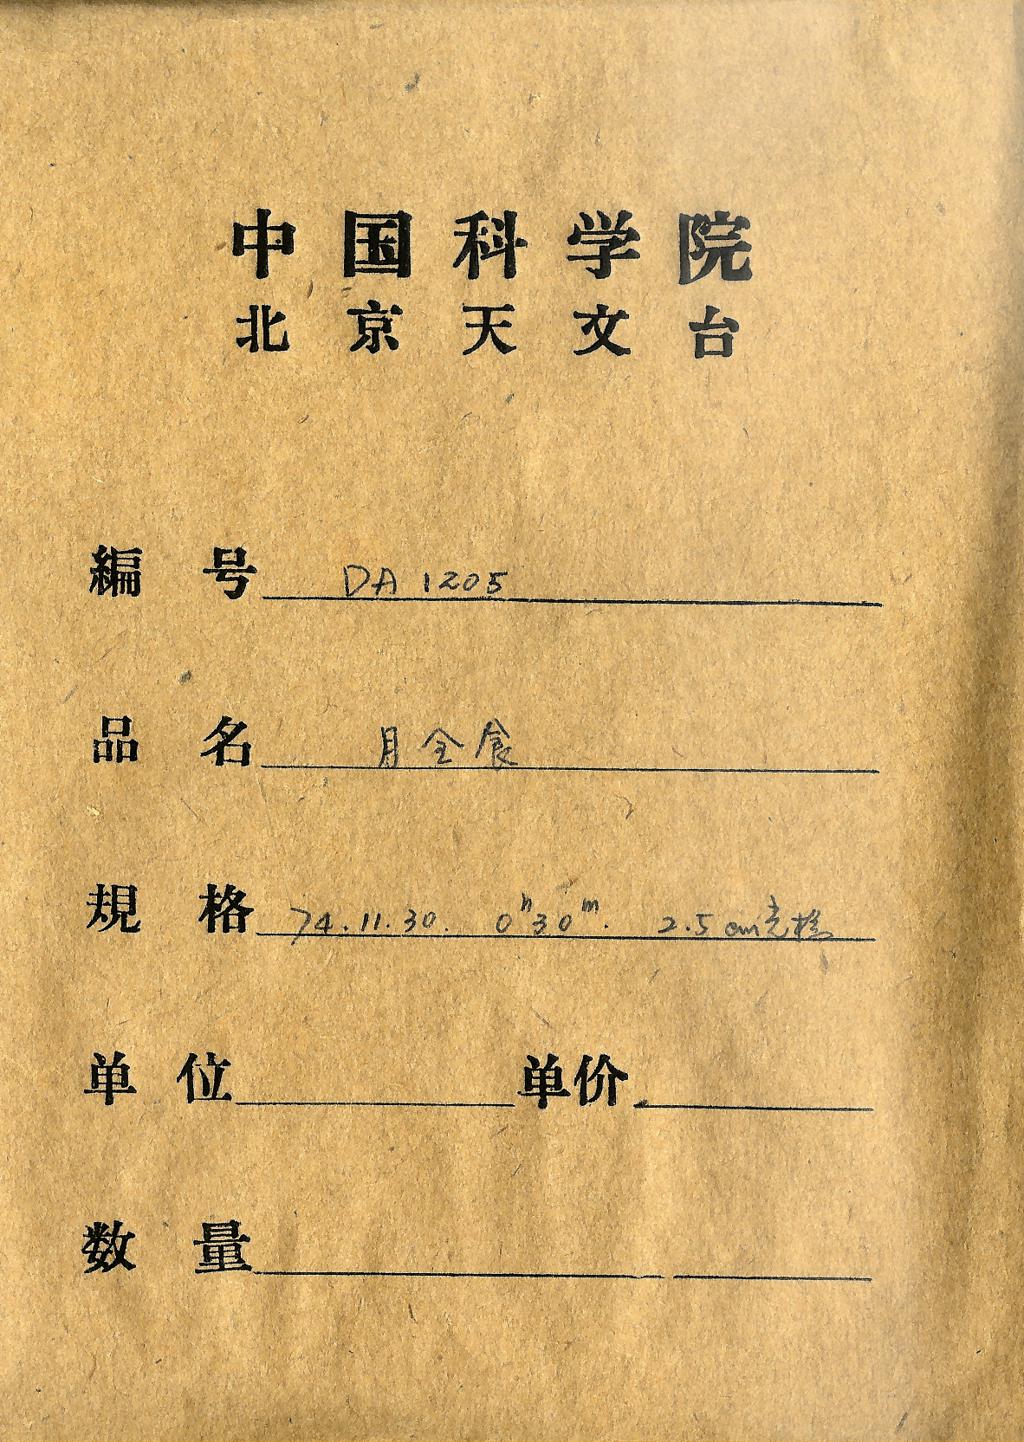 中国科学院
北京天文台
編号 DA 1205
品名 月全食
規格 74.11.30. 0ʰ30ᵐ. 2.5cm
单位 单价
数量